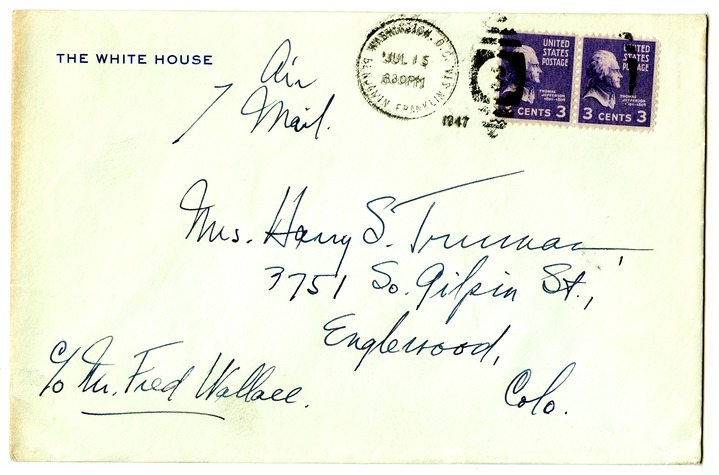 THE WHITE HOUSE
Air
Mail.
WASHINGTON, D.C.
JUL 15
630PM
BENJAMIN FRANKLIN STA.
1947
UNITED
STATES
POSTAGE
THOMAS
JEFFERSON
CENTS 3
UNITED
STATES
POSTAGE
THOMAS
JEFFERSON
3 CENTS 3
Mrs. Harry S. Truman,
3751 So. Gilpin St.,
Englewood,
Colo.
c/o Mr. Fred Wallace.